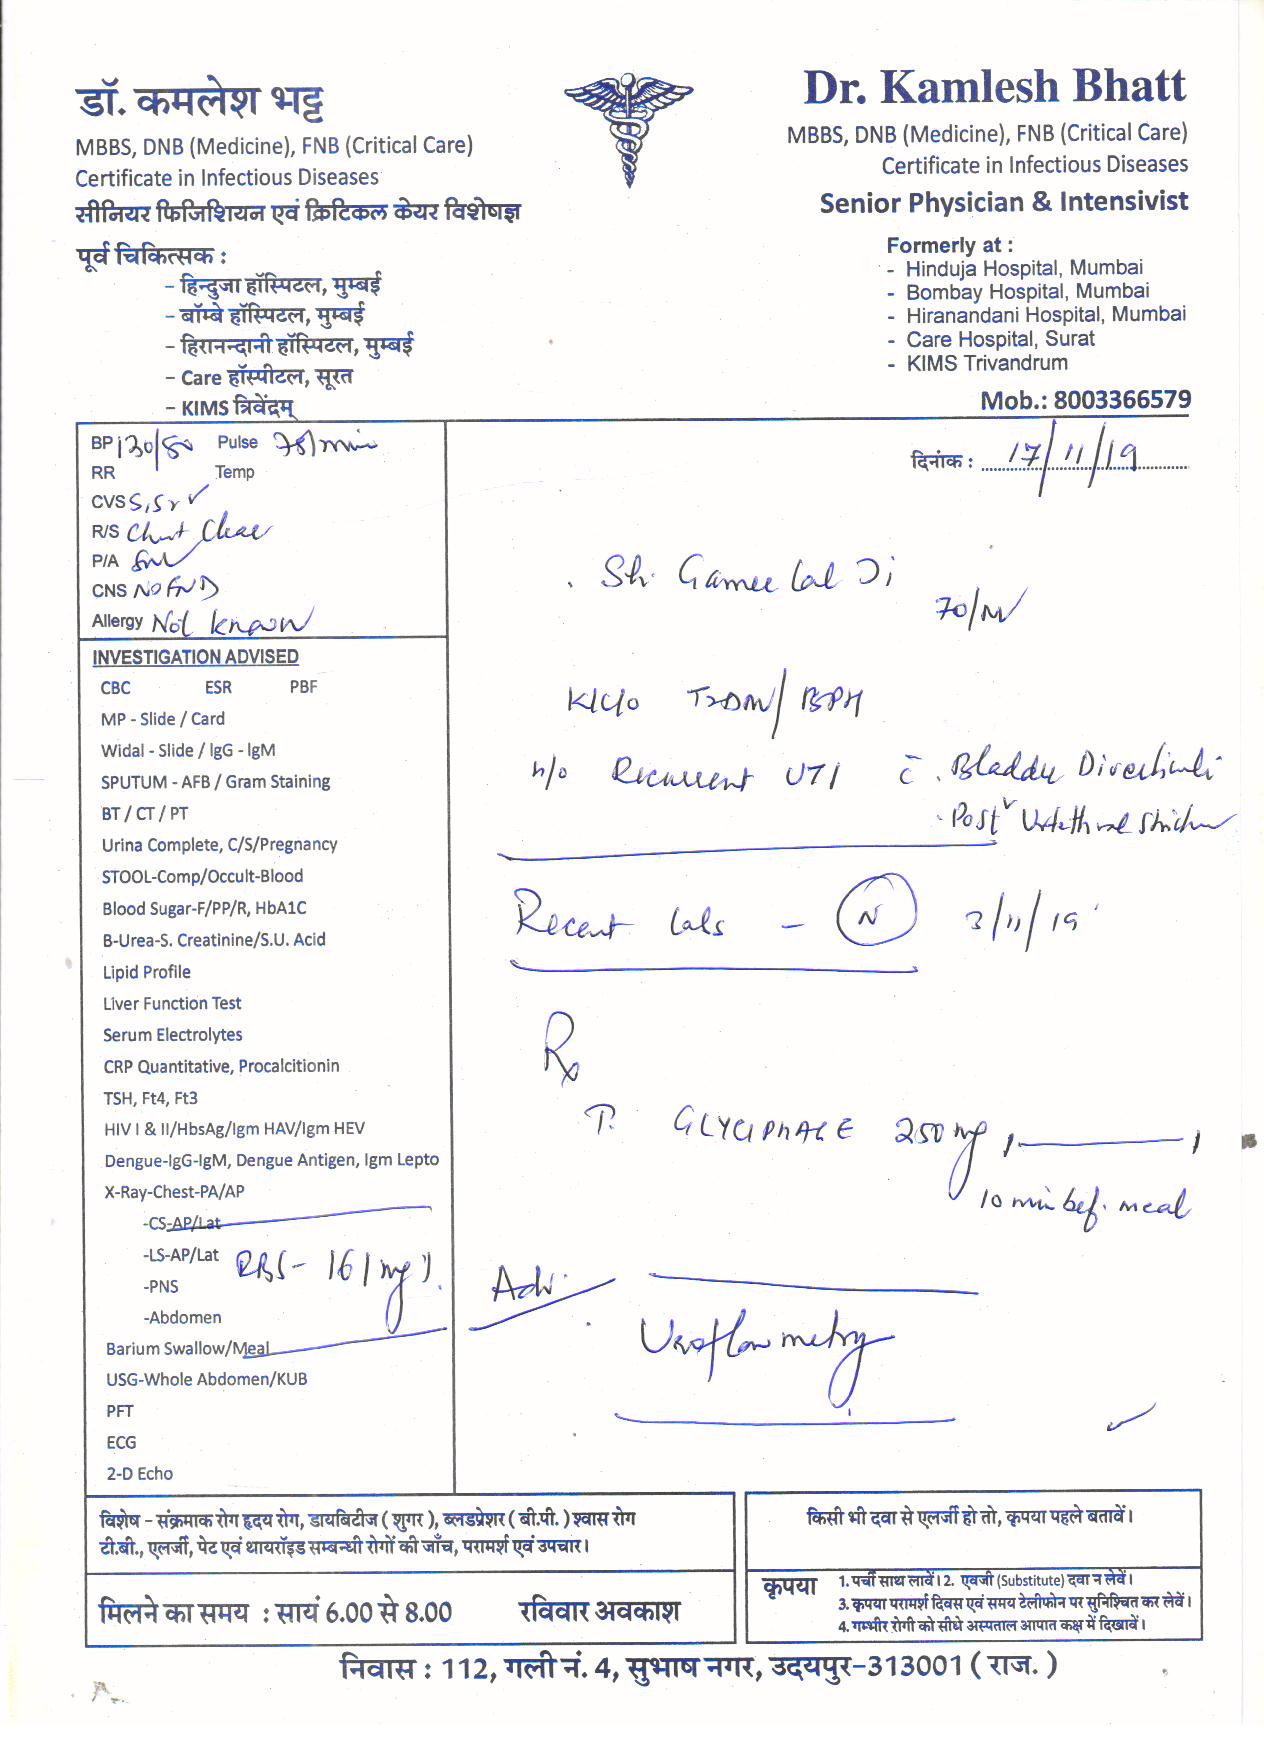 डॉ. कमलेश भट्ट
MBBS, DNB (Medicine), FNB (Critical Care)
Certificate in Infectious Diseases
सीनियर फिजिशियन एवं क्रिटिकल केयर विशेषज्ञ
पूर्व चिकित्सक :
- हिन्दुजा हॉस्पिटल, मुम्बई
- बॉम्बे हॉस्पिटल, मुम्बई
- हिरानन्दानी हॉस्पिटल, मुम्बई
- Care हॉस्पीटल, सूरत
- KIMS त्रिवेंद्रम्
Dr. Kamlesh Bhatt
MBBS, DNB (Medicine), FNB (Critical Care)
Certificate in Infectious Diseases
Senior Physician & Intensivist
Formerly at :
- Hinduja Hospital, Mumbai
- Bombay Hospital, Mumbai
- Hiranandani Hospital, Mumbai
- Care Hospital, Surat
- KIMS Trivandrum
Mob.: 8003366579
BP 130/80 Pulse 78/min
RR Temp
CVS S1S2 ✓
R/S Chest Clear
P/A
CNS NO FND
Allergy Not known
INVESTIGATION ADVISED
CBC ESR PBF
MP - Slide / Card
Widal - Slide / IgG - IgM
SPUTUM - AFB / Gram Staining
BT / CT / PT
Urina Complete, C/S/Pregnancy
STOOL-Comp/Occult-Blood
Blood Sugar-F/PP/R, HbA1C
B-Urea-S. Creatinine/S.U. Acid
Lipid Profile
Liver Function Test
Serum Electrolytes
CRP Quantitative, Procalcitionin
TSH, Ft4, Ft3
HIV I & II/HbsAg/Igm HAV/Igm HEV
Dengue-IgG-IgM, Dengue Antigen, Igm Lepto
X-Ray-Chest-PA/AP
-CS-AP/Lat
-LS-AP/Lat
RBS - 161 mg%
-PNS
-Abdomen
Barium Swallow/Meal
USG-Whole Abdomen/KUB
PFT
ECG
2-D Echo
दिनांक : 17/11/19
Sh. Gamee Lal Ji
70/M
K/C/O T2DM/BPH
h/o Recurrent UTI c̄ . Bladder Diverticuli
. Post Urethral Stricture
Recent labs - N 3/11/19
Rx
T. GLYCIPHAGE 250 mg 1 ——— 1
10 min bef. meal
Adv.
Uroflowmetry
विशेष - संक्रमाक रोग हृदय रोग, डायबिटीज ( शुगर ), ब्लडप्रेशर ( बी.पी. ) श्वास रोग
टी.बी., एलर्जी, पेट एवं थायरॉइड सम्बन्धी रोगों की जाँच, परामर्श एवं उपचार।
मिलने का समय : सायं 6.00 से 8.00 रविवार अवकाश
किसी भी दवा से एलर्जी हो तो, कृपया पहले बतावें।
कृपया 1. पर्ची साथ लावें। 2. एवजी (Substitute) दवा न लेवें।
3. कृपया परामर्श दिवस एवं समय टेलीफोन पर सुनिश्चित कर लेवें।
4. गम्भीर रोगी को सीधे अस्पताल आपात कक्ष में दिखावें।
निवास : 112, गली नं. 4, सुभाष नगर, उदयपुर-313001 ( राज. )